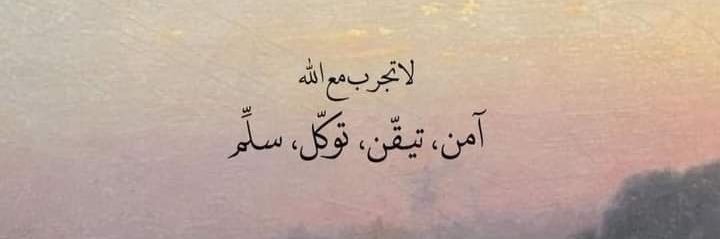 لا تجرب مع الله
آمن، تيقّن، توكّل، سلِّم